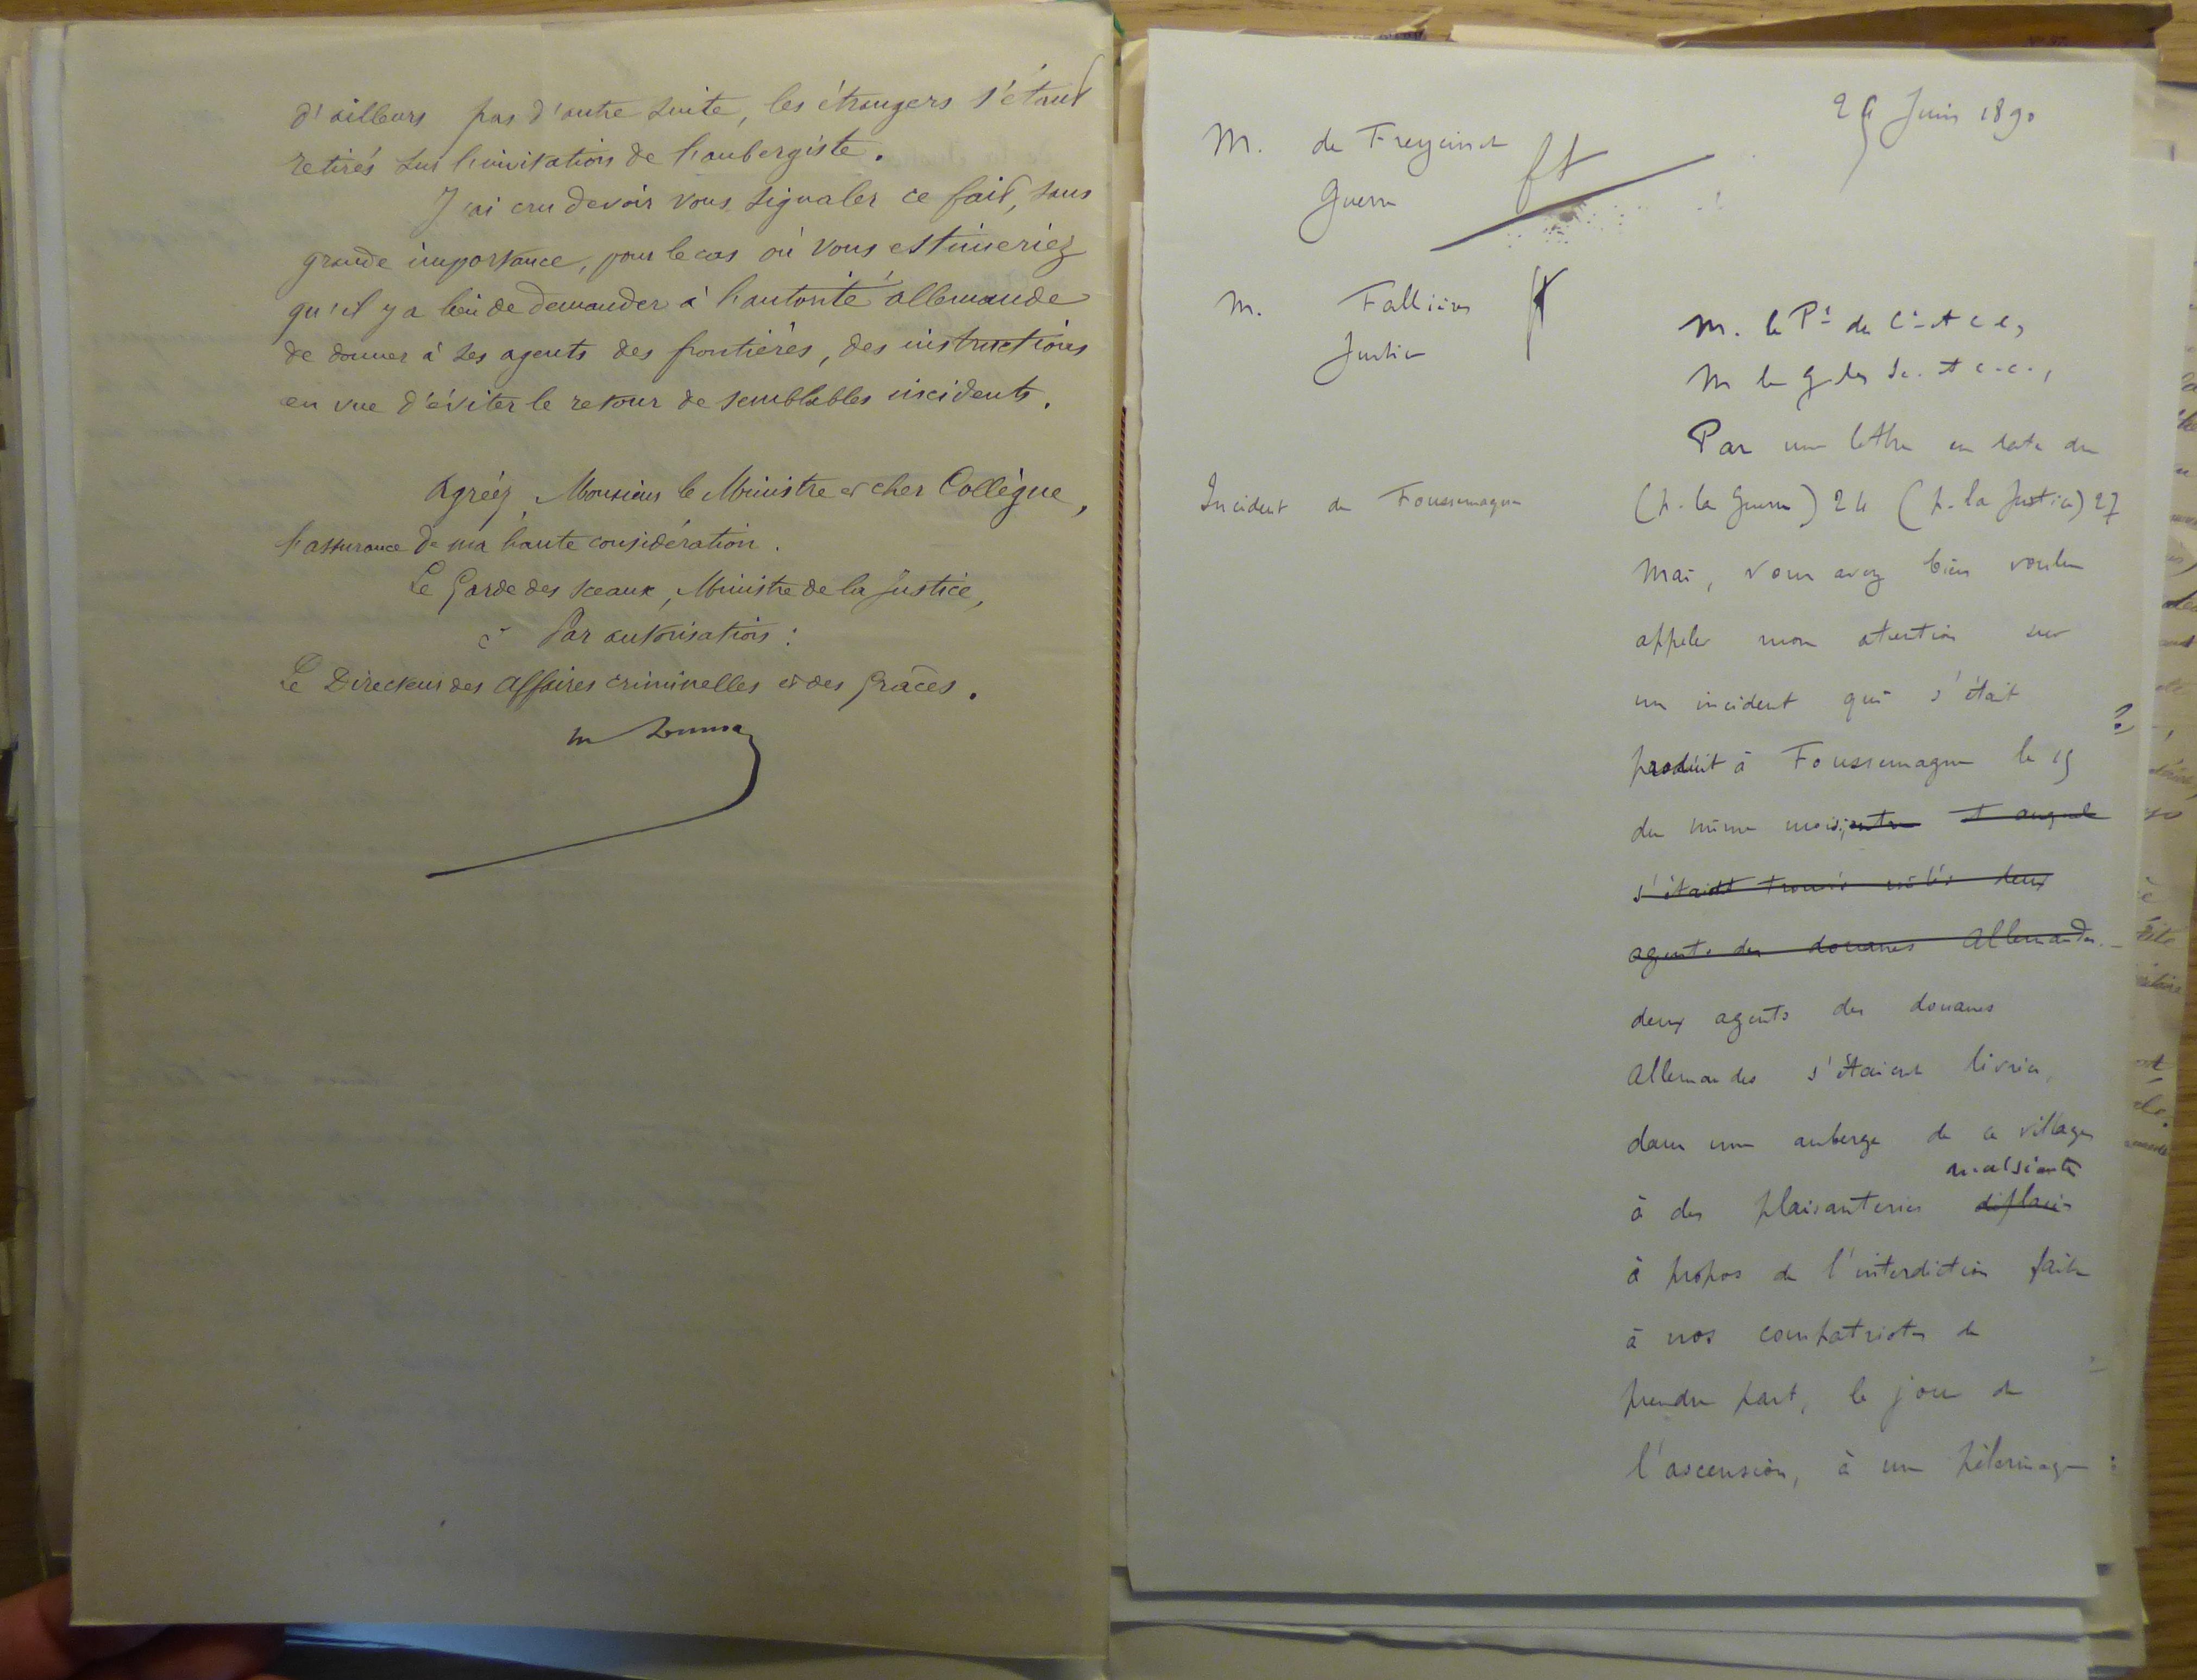 d'ailleurs pas d'autre suite, les étrangers s'étant
retirés sur l'invitation de l'aubergiste.
J'ai cru devoir vous signaler ce fait, sans
grande importance, pour le cas où vous estimeriez
qu'il y a lieu de demander à l'autorité allemande
de donner à ses agents des frontières, des instructions
en vue d'éviter le retour de semblables incidents.
Agréez, Monsieur le Ministre et cher Collègue,
l'assurance de ma haute considération.
Le Garde des Sceaux, Ministre de la Justice,
Par autorisation :
Le Directeur des Affaires criminelles et des Grâces.
Juin 1890
M. de Freycinet
Guerre
M. Fallières
Justice
M. le Pt du C. et c. c,
M le g. des Sc. et c. c.,
Incident de Foussemagne
Par une lettre en date du
(p. la Guerre) 24 (p. la Justice) 27
Mai, vous avez bien voulu
appeler mon attention sur
un incident qui s'était
produit à Foussemagne le 15
du même mois; entre et auquel
s'étaient trouvés mêlés deux
agents des douanes Allemandes.
deux agents des douanes
Allemandes s'étaient livrés,
dans une auberge de ce village
malséantes
à des plaisanteries déplacées
à propos de l'interdiction faite
à nos compatriotes de
prendre part, le jour de
l'ascension, à un pèlerinage